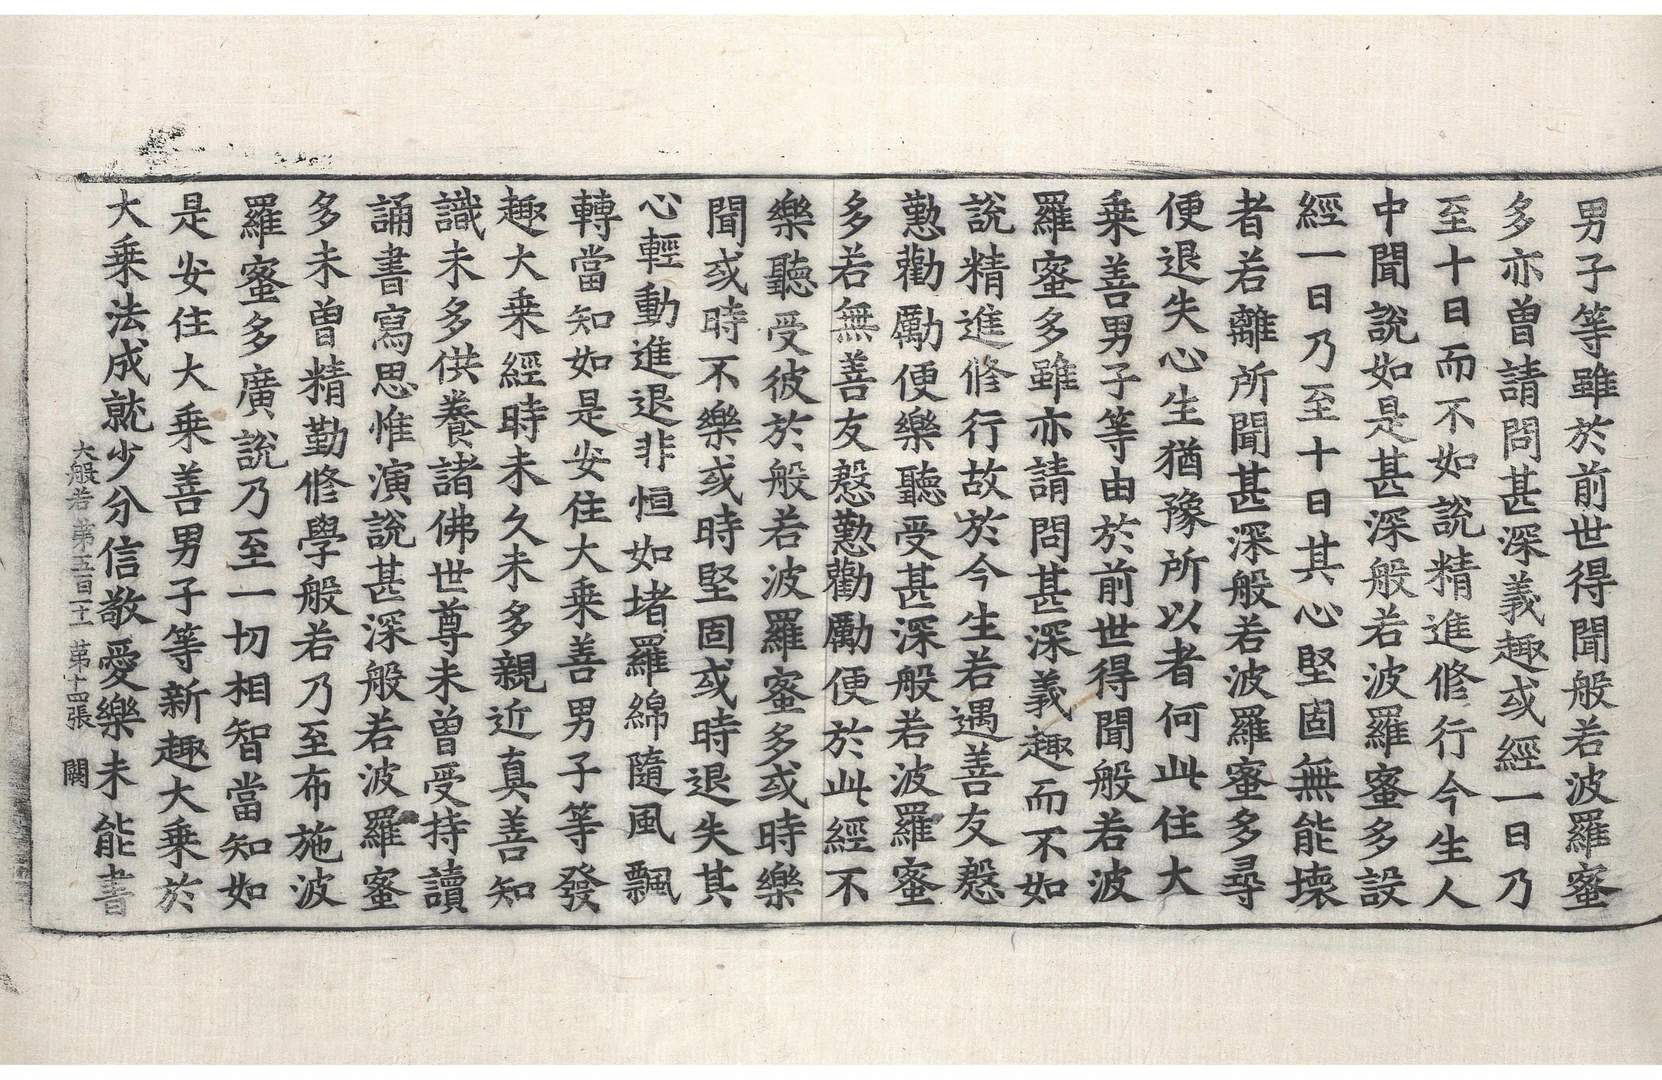 男子等雖於前世得聞般若波羅蜜
多亦曾請問甚深義趣或經一日乃
至十日而不如說精進修行今生人
中聞說如是甚深般若波羅蜜多設
經一日乃至十日其心堅固無能壞
者若離所聞甚深般若波羅蜜多尋
便退失心生猶豫所以者何此住大
乗善男子等由於前世得聞般若波
羅蜜多雖亦請問甚深義趣而不如
說精進修行故於今生若遇善友慇
懃勸勵便樂聽受甚深般若波羅蜜
多若無善友慇懃勸勵便於此經不
樂聽受彼於般若波羅蜜多或時樂
聞或時不樂或時堅固或時退失其
心輕動進退非恒如堵羅綿隨風飄
轉當知如是安住大乗善男子等發
趣大乗經時未久未多親近真善知
識未多供養諸佛世尊未曾受持讀
誦書寫思惟演說甚深般若波羅蜜
多未曾精勤修學般若乃至布施波
羅蜜多廣說乃至一切相智當知如
是安住大乗善男子等新趣大乗於
大乗法成就少分信敬愛樂未能書
大般若 第五百一十一 第十四張 闕